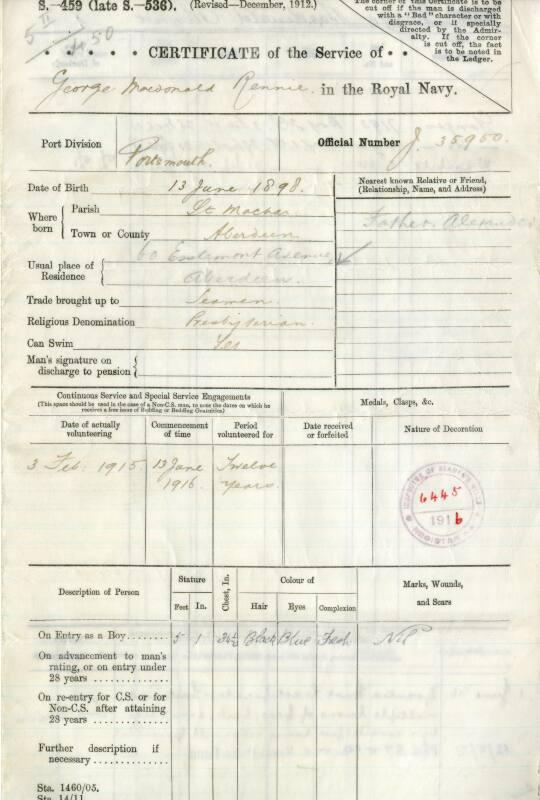 S.—459 (late S.—536). (Revised—December, 1912.)
The corner of this Certificate is to be
cut off if the man is discharged
with a "Bad" character or with
disgrace, or if specially
directed by the Admir-
alty. If the corner
is cut off, the fact
is to be noted in
the Ledger.
CERTIFICATE of the Service of
George Macdonald Rennie in the Royal Navy.
Port Division
Portsmouth.
Official Number J. 35950.
Date of Birth 13 June 1898.
Nearest known Relative or Friend,
(Relationship, Name, and Address)
Where born
Parish St Machar
Father. Alexander
Town or County Aberdeen
Usual place of Residence
60 Avenue,
Aberdeen.
Trade brought up to Seaman.
Religious Denomination Presbyterian.
Can Swim Yes
Man's signature on
discharge to pension
Continuous Service and Special Service Engagements
(This space should be used in the case of a Non-C.S. man, to note the dates on which he
receives a free issue of Bedding or Bedding Gratuities)
Medals, Clasps, &c.
Date of actually
volunteering
Commencement
of time
Period
volunteered for
Date received
or forfeited
Nature of Decoration
3 Feb. 1915
13 June
1916.
Twelve
years.
6445
1916
Description of Person
Stature
Feet In.
Chest, In.
Colour of
Hair Eyes Complexion
Marks, Wounds,
and Scars
On Entry as a Boy 5 1 Black Blue Fresh Nil
On advancement to man's
rating, or on entry under
28 years
On re-entry for C.S. or for
Non-C.S. after attaining
28 years
Further description if
necessary
Sta. 1460/05.
Sta. 14/11.